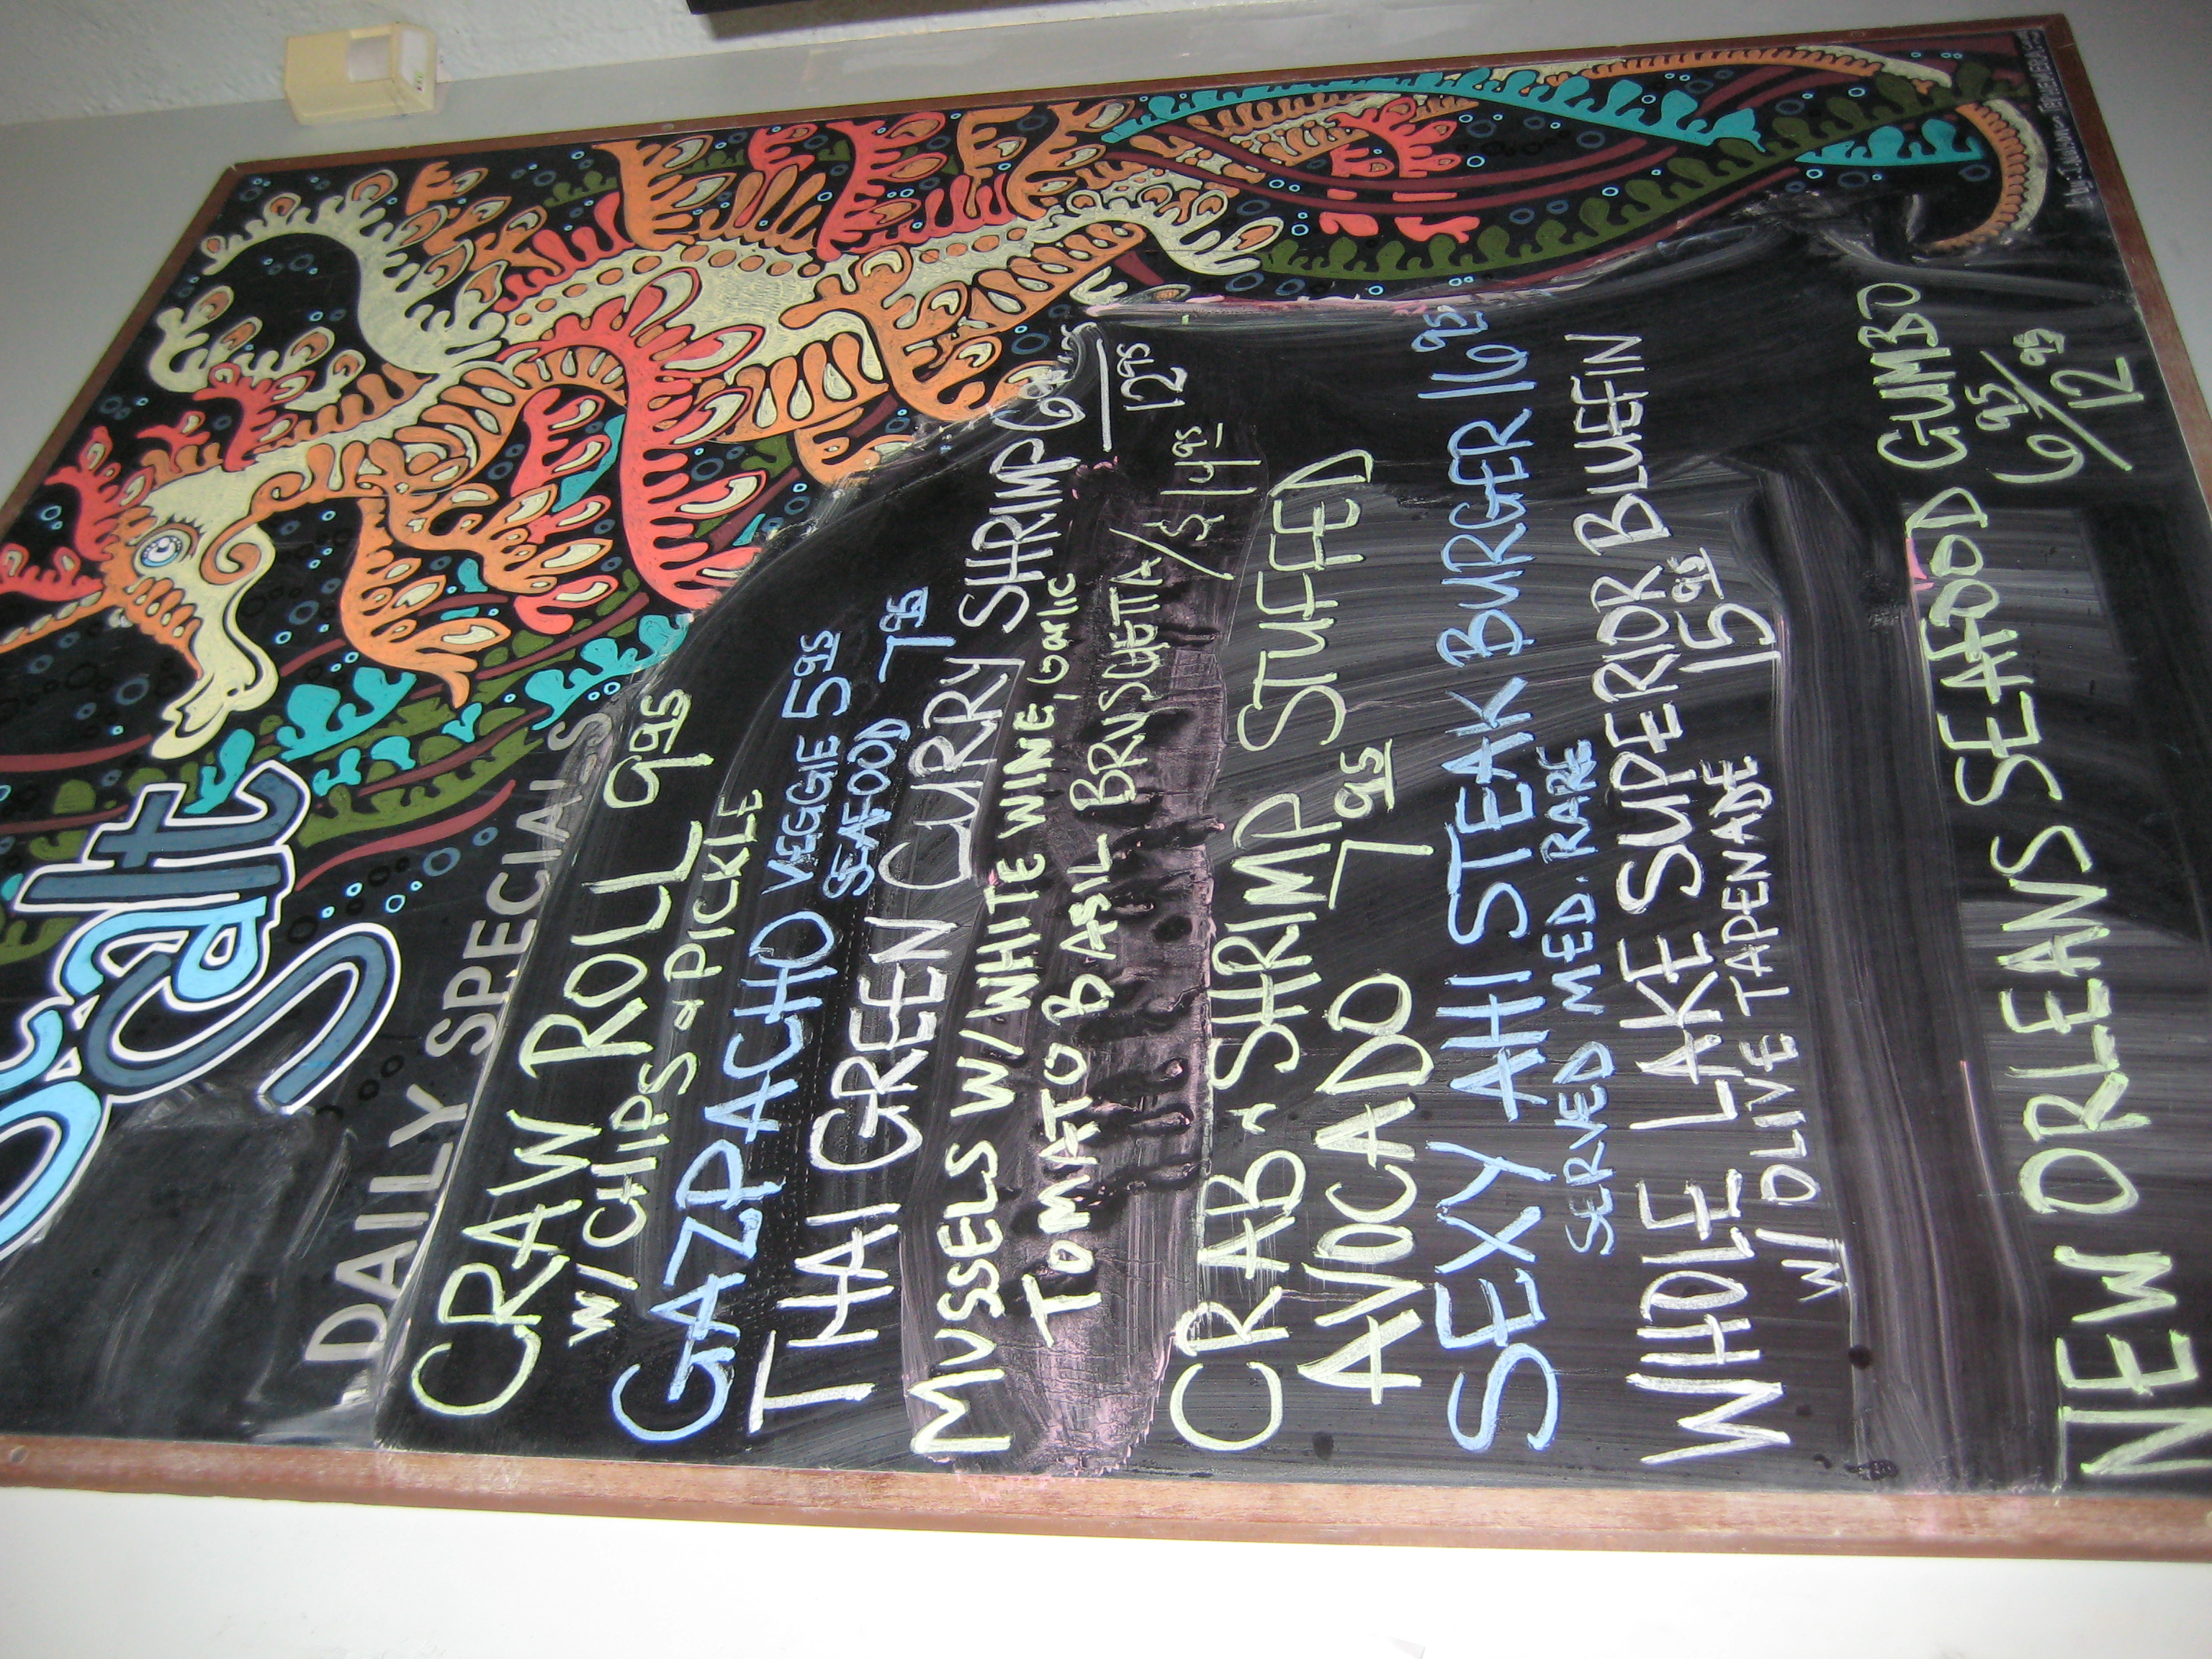 Salt
DAILY SPECIALS
CRAW ROLL 9.95
W/ CHIPS & PICKLE
GAZPACHO VEGGIE 5.95
SEAFOOD 7.95
THAI GREEN CURRY SHRIMP 6.95
12.95
MUSSELS W/ WHITE WINE, Garlic
TOMATO BASIL BRUSCHETTA / $ 14.95
CRAB & SHRIMP STUFFED
AVOCADO 7.95
SEXY AHI STEAK BURGER 16.95
SERVED MED. RARE
WHOLE LAKE SUPERIOR BLUEFIN
W/ OLIVE TAPENADE 15.95
NEW ORLEANS SEAFOOD GUMBO
6.95/12.95